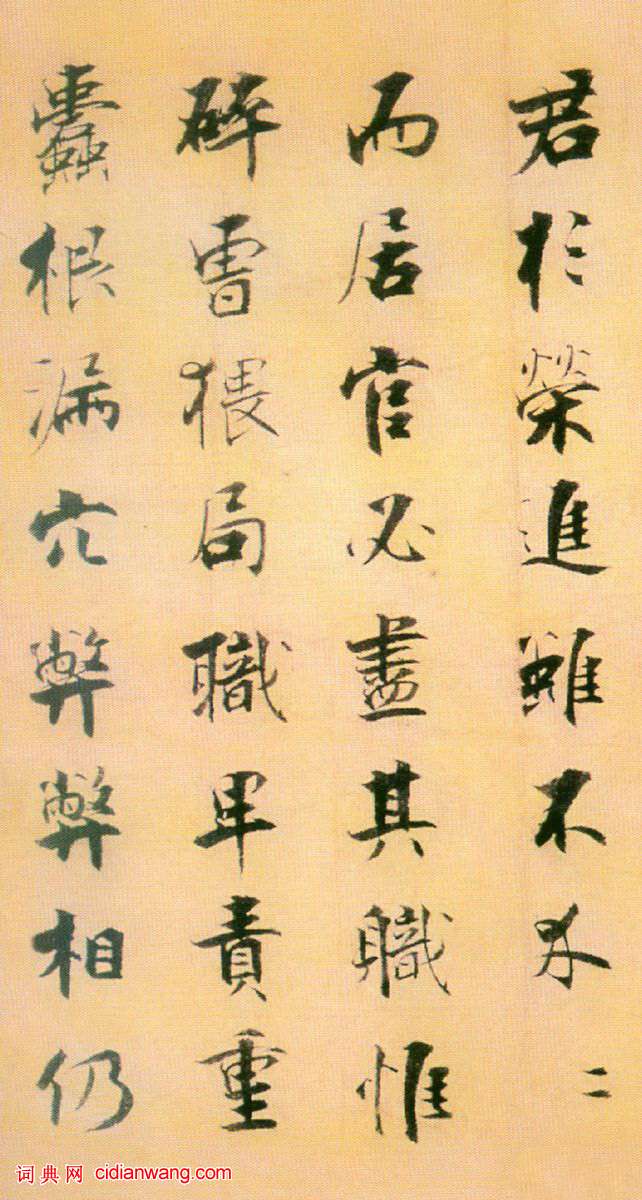 君於榮進雖不二
而居官必盡其職惟
碎曹猥局職卑責重
蠹根漏穴弊弊相仍
词典网 cidianwang.com